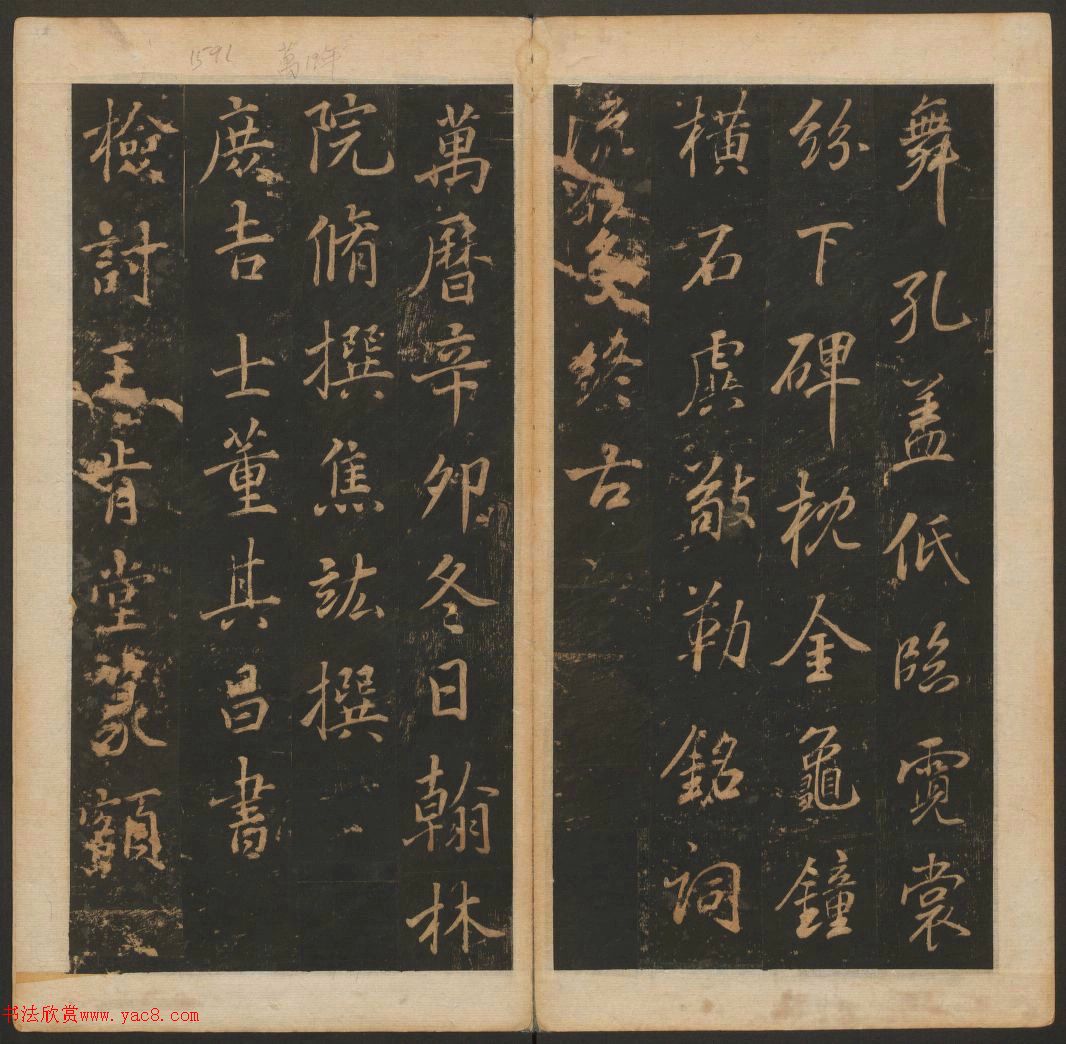 舞孔盖低臨霓裳
紛下碑枕金龜鐘
橫石虡敲勒銘詞
流徽終古
萬曆辛卯冬日翰林
院脩撰焦竑撰
庶吉士董其昌書
檢討王肯堂篆額
1591 萬19年
书法欣赏www.yac8.com